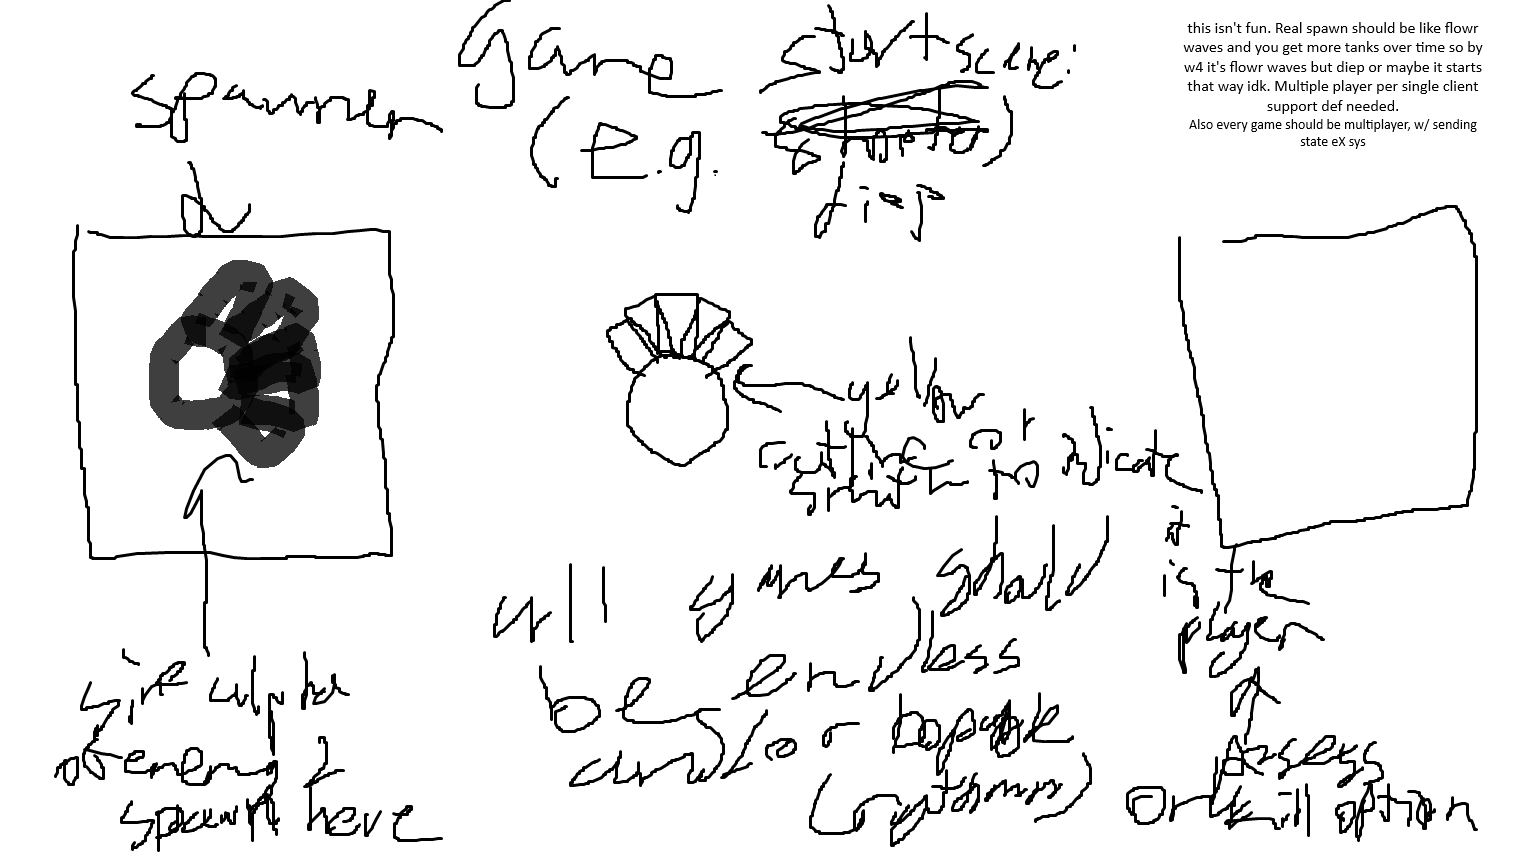 spawner
game
start scene:
(e.g.
diep
this isn't fun. Real spawn should be like flowr
waves and you get more tanks over time so by
w4 it's flowr waves but diep or maybe it starts
that way idk. Multiple player per single client
support def needed.
Also every game should be multiplayer, w/ sending
state eX sys
yellow
outline or
to indicate
it
is the
player
all games should
be endless
and/or
enemy
spawn here
or kill option